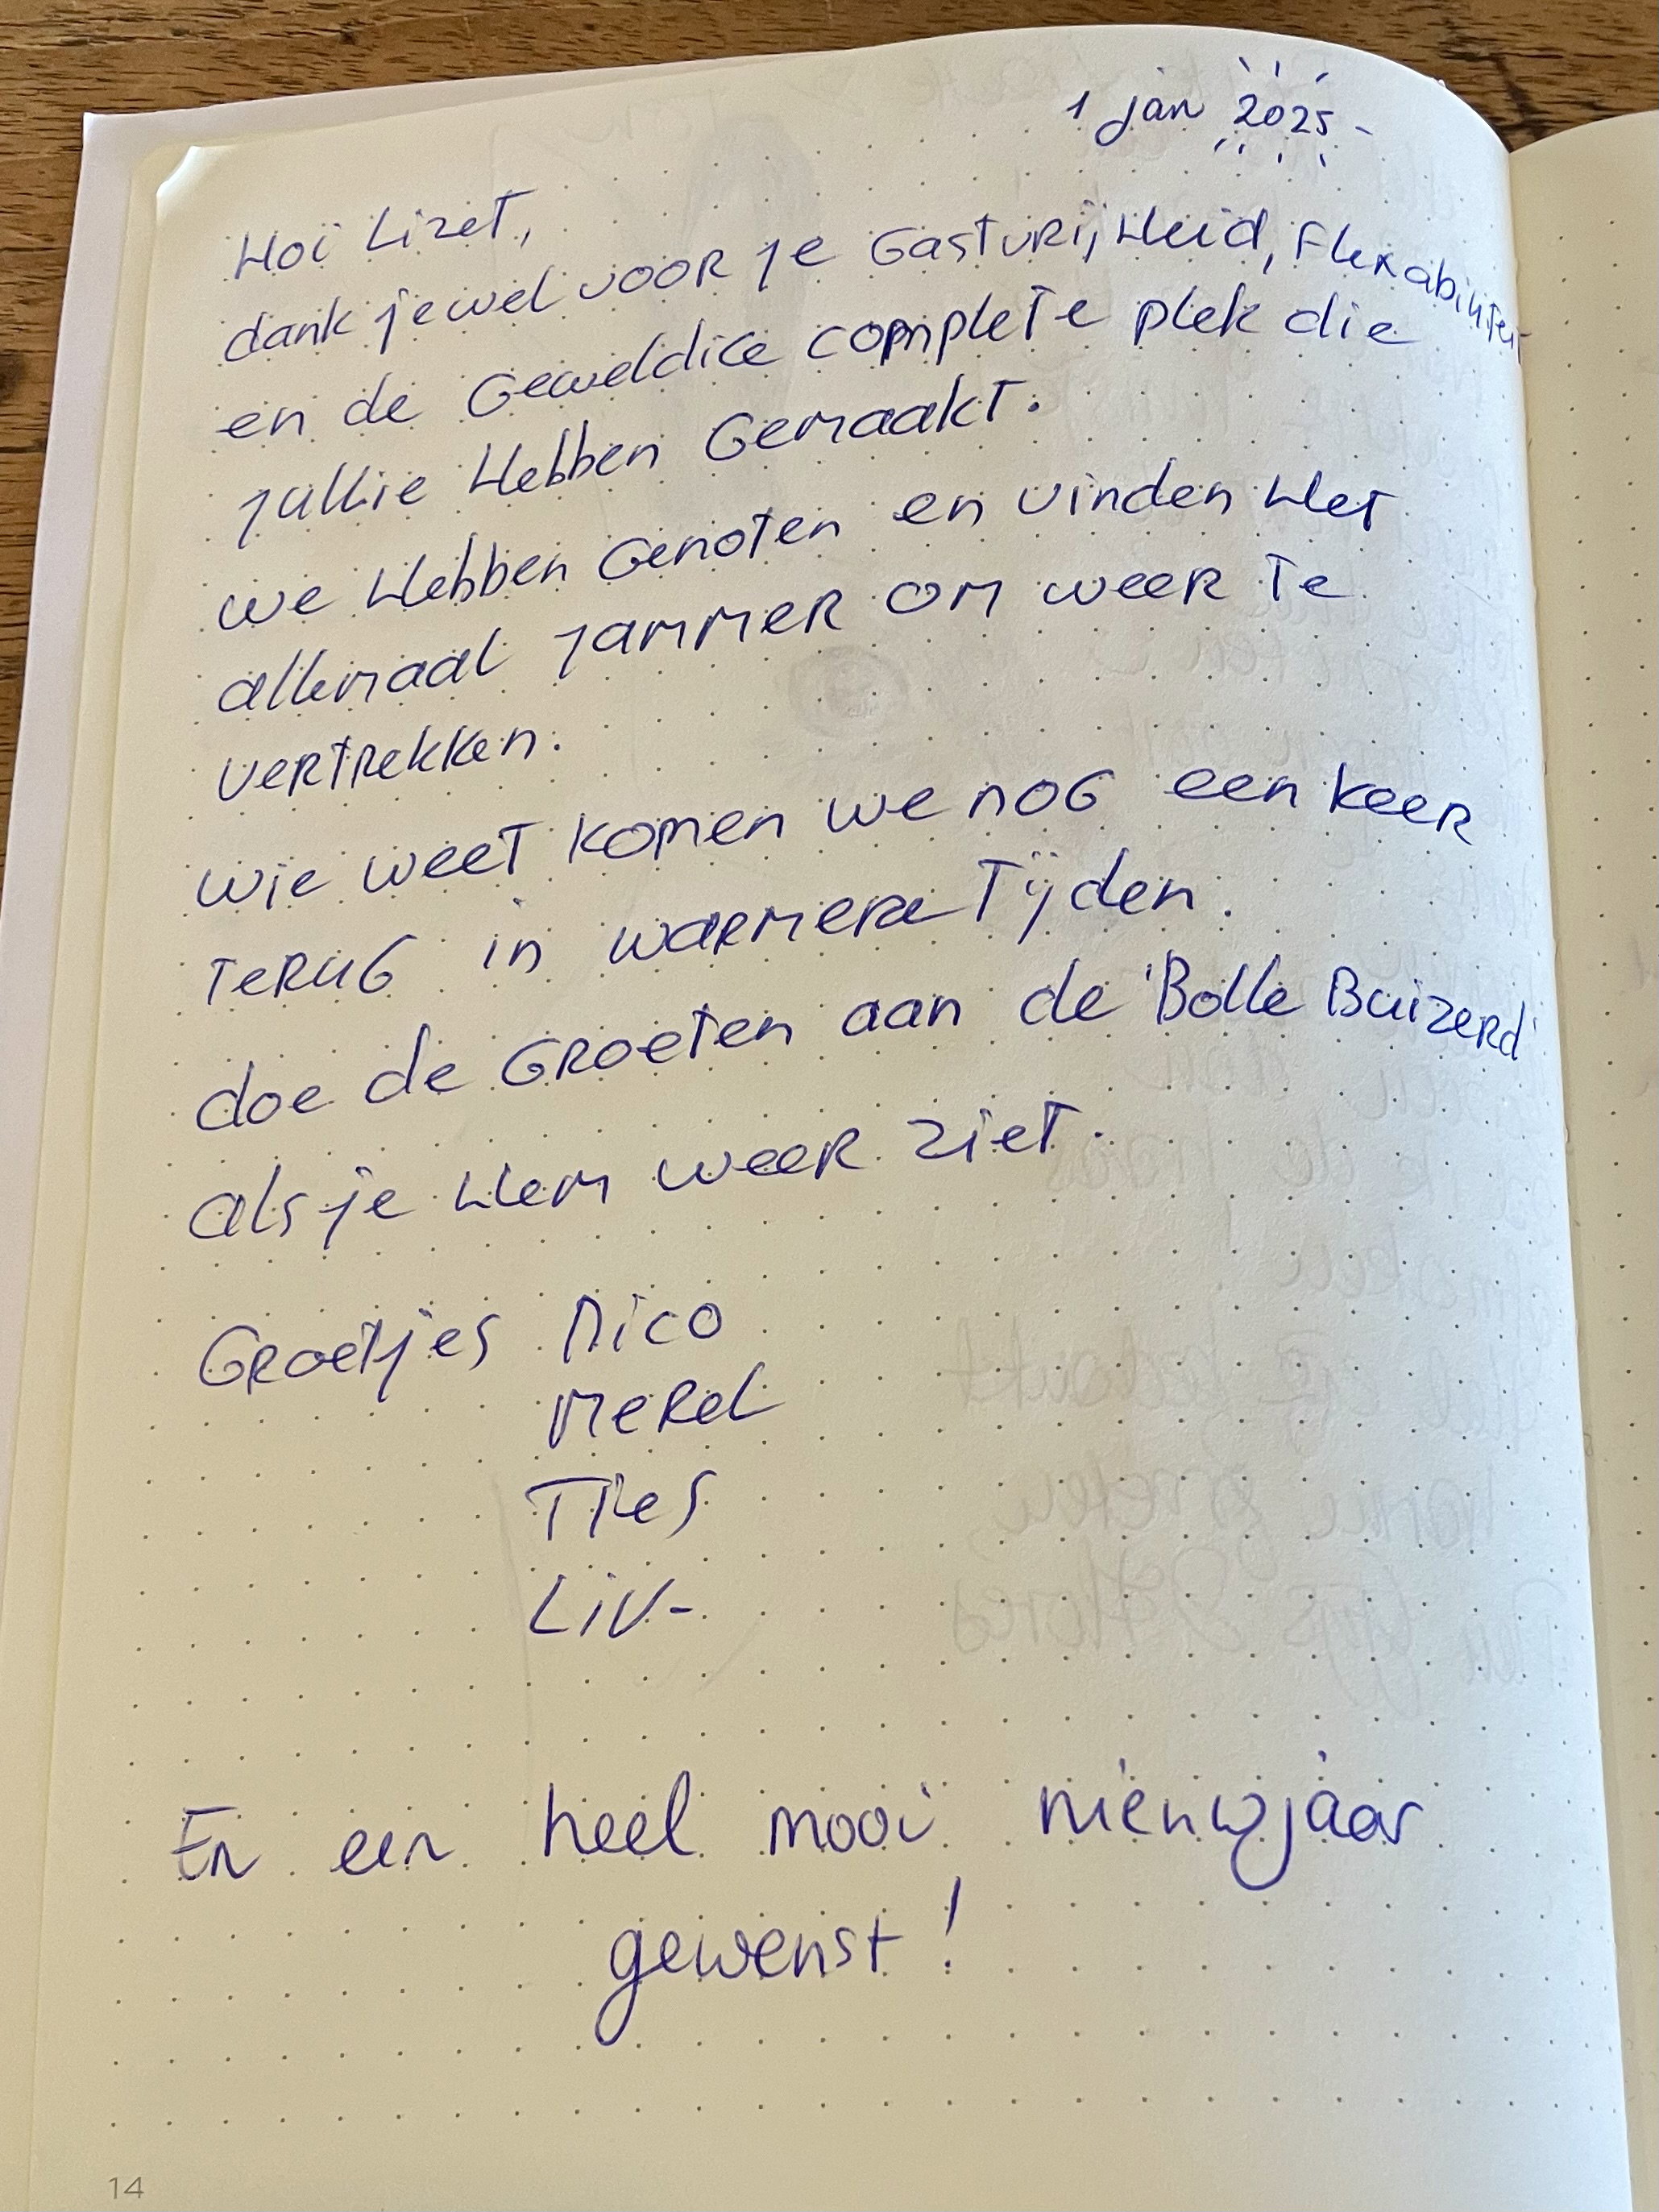 1 jan 2025
Hoi Lizet,
dank jewel voor je Gastvrijheid, Flexabiliteit
en de Geweldice complete plek die
jullie Hebben Gemaakt.
we Hebben Genoten en vinden Het
allemaal jammer om weer te
vertrekken.
wie weet komen we nog een keer
terug in warmere Tijden.
doe de Groeten aan de 'Bolle Buizerd'
als je Hem weer ziet.
Groetjes Nico
Merel
Ties
Liv-
En een heel mooi nieuwjaar
gewenst!
14